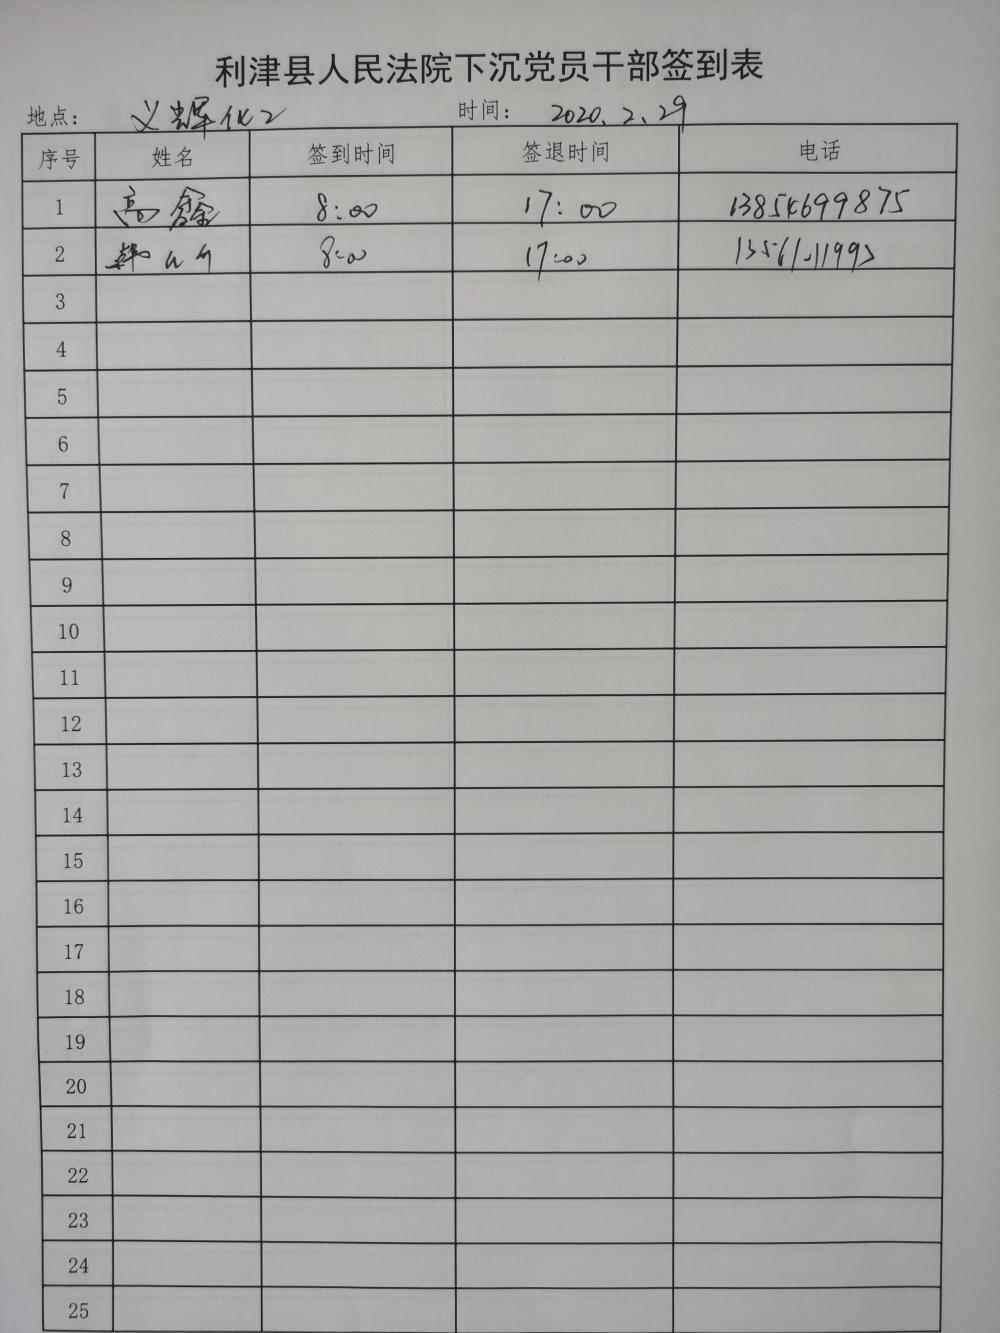 利津县人民法院下沉党员干部签到表
地点： 义辉化工 时间： 2020.2.29
序号 姓名 签到时间 签退时间 电话
1 高鑫 8:00 17:00 13854699875
2 韩 8:00 17:00
3
4
5
6
7
8
9
10
11
12
13
14
15
16
17
18
19
20
21
22
23
24
25